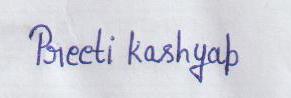 Preeti kashyap